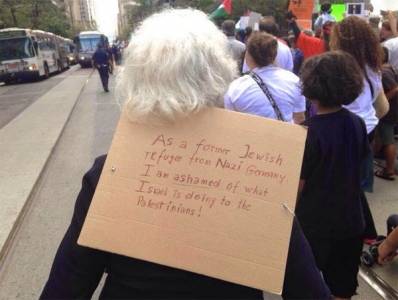 As a former Jewish
refugee from Nazi Germany
I am ashamed of what
Israel is doing to the
Palestinians!